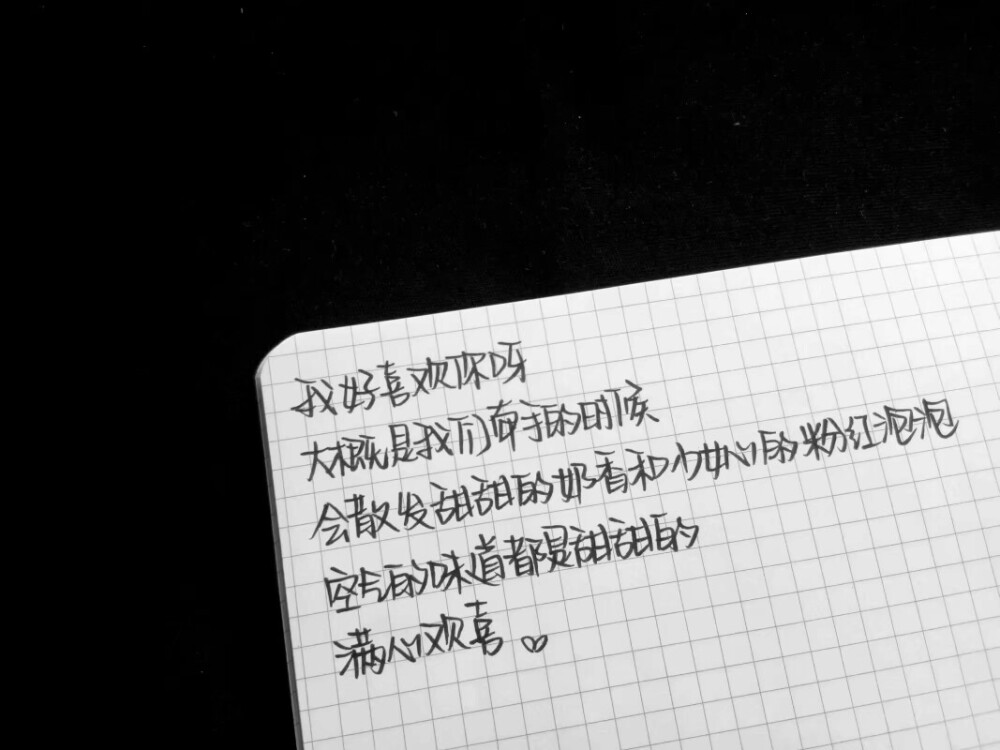 我好喜欢你呀
大概是我们牵手的时候
会散发甜甜的奶香和少女心的粉红泡泡
空气的味道都是甜甜的
满心欢喜♡